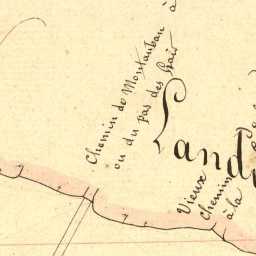 Chemin de Montauban à
ou du pas des
Land
Vieux
chemin
à la